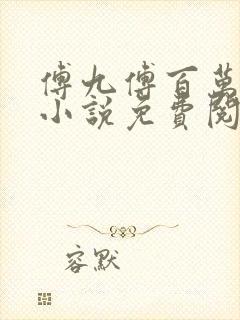 傅九傅百萬
小說免費閱
容默